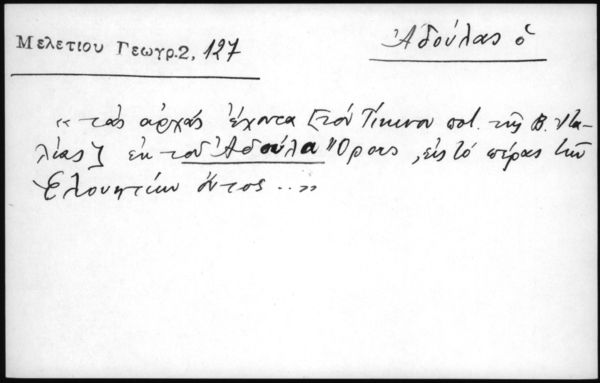 Μελετίου Γεωγρ.2, 127
Ἀδούλας ὁ
« τὰς ἀρχὰς ἔχοντα [τὸν Τίκινον ποτ. τῆς Β. Ἰτα-
λίας] ἐκ τοῦ Ἀδούλα Ὄρους, εἰς τὸ πέρας τῶν
Ἑλουητίων ὄντος ... »